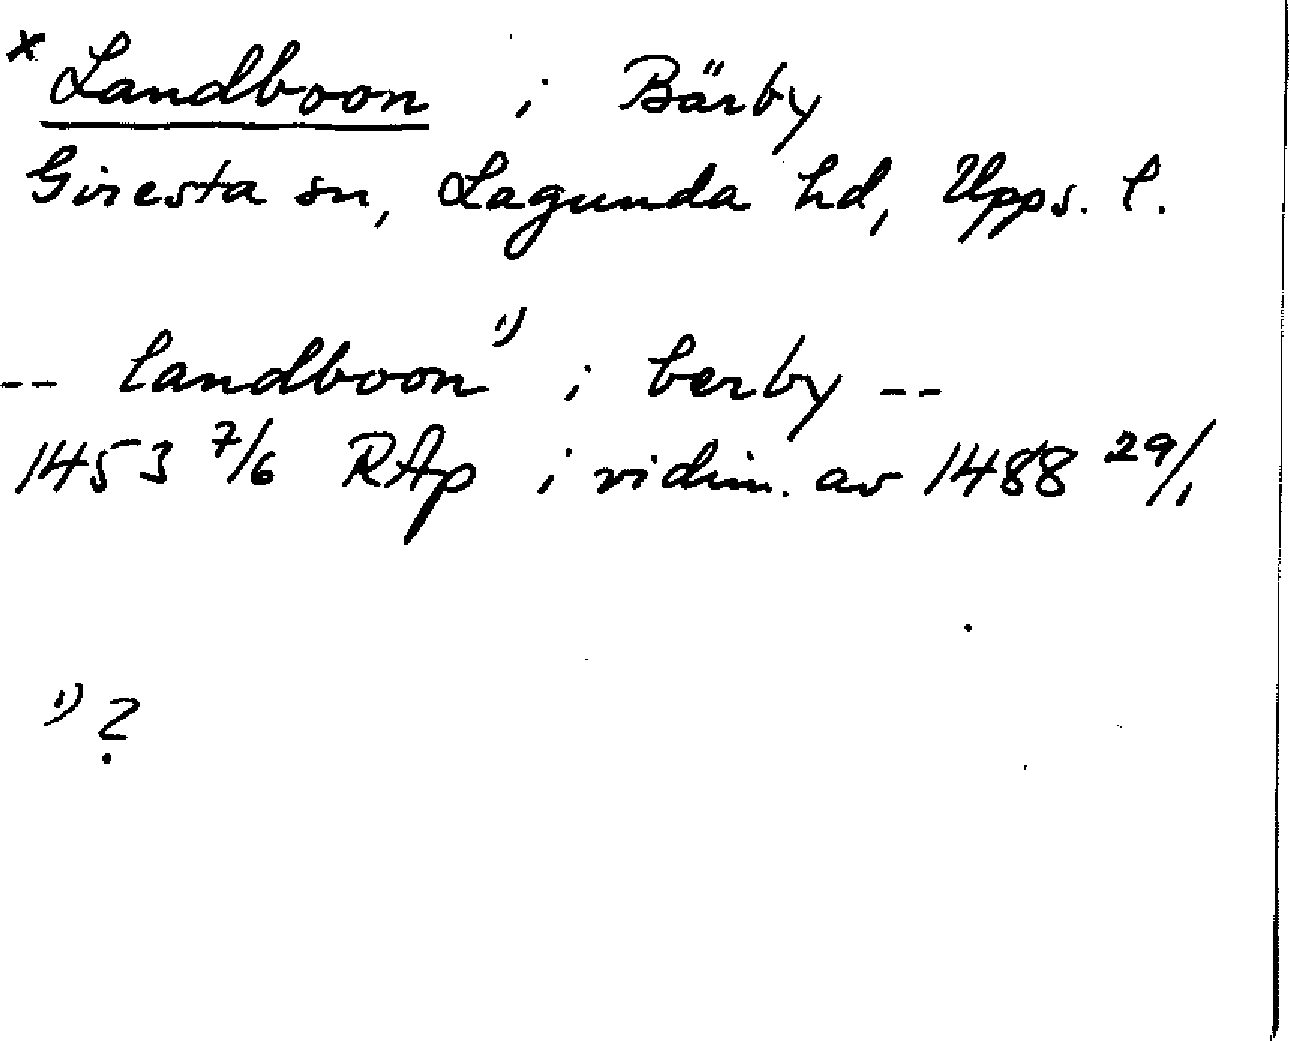 * Landboon i Bärby
Giresta sn, Lagunda hd, Upps. l.
-- landboon 1) i berby --
1453 7/6 RAp i vidim. av 1488 29/1
1) ?